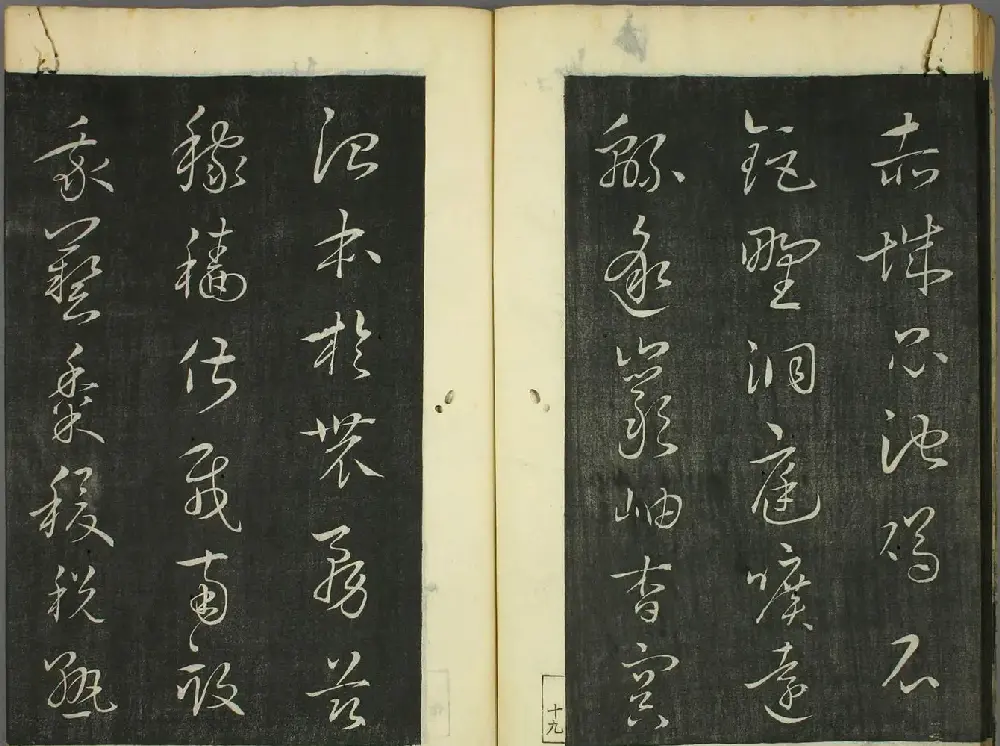 赤城昆池碣石
鉅野洞庭曠遠
緜邈巖岫杳冥
治本於農務茲
稼穡俶載南畝
我藝黍稷稅熟
十九